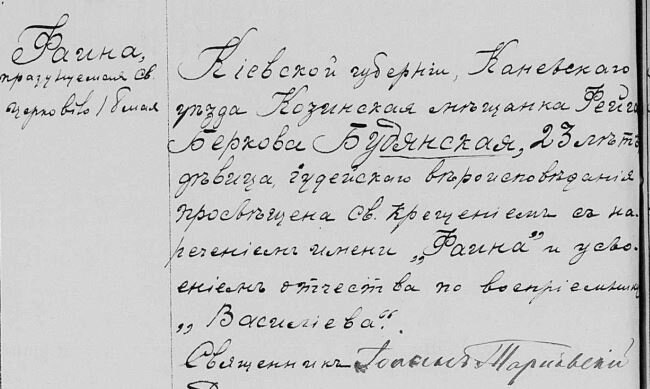 Фаина,
празднуемая св.
церковію 18 мая
Кіевской губерніи, Каневскаго
уѣзда Козинская мѣщанка Рейза
Беркова Будянская, 23 лѣтъ
дѣвица, іудейскаго вѣроисповѣданія
просвѣщена св. крещеніемъ съ на-
реченіемъ имени „Фаина“ и усво-
еніемъ отчества по воспріемнику
„Василіева“.
Священникъ